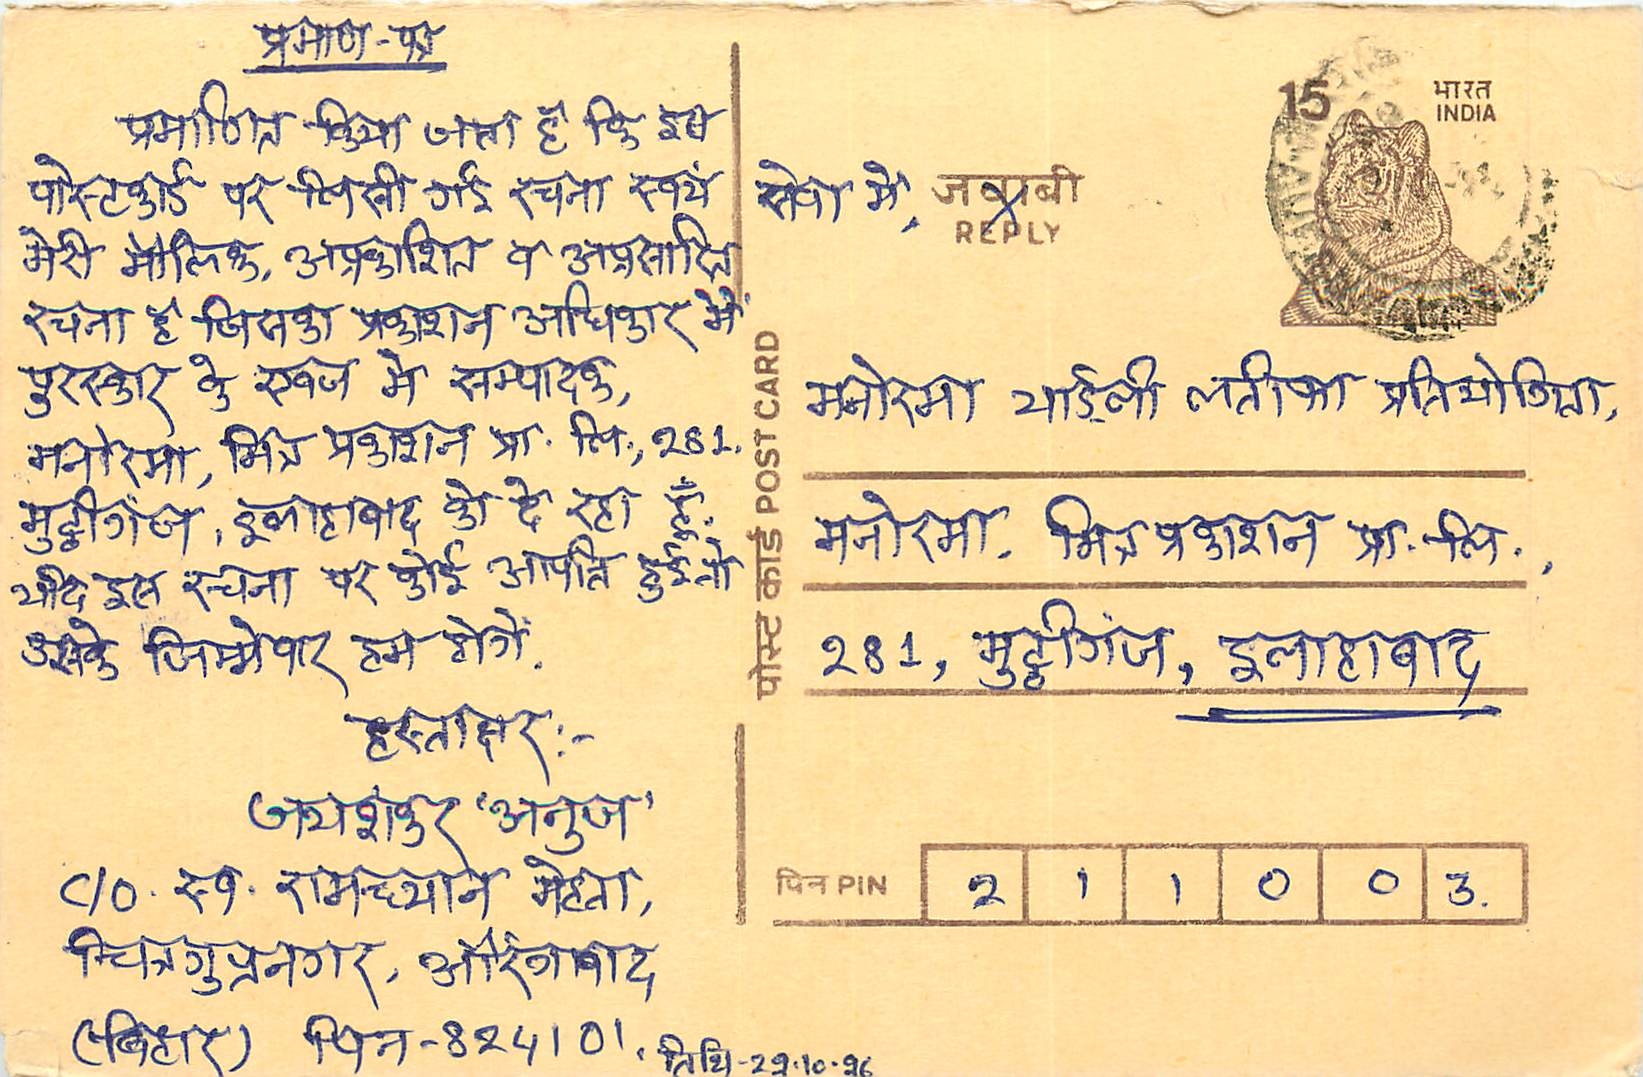 प्रमाण-पत्र
प्रमाणित किया जाता है कि इस
पोस्टकार्ड पर लिखी गई रचना स्वयं
मेरी मौलिक, अप्रकाशित व अप्रसारित
रचना है जिसका प्रकाशन अधिकार मैं
पुरस्कार के एवज में सम्पादक,
मनोरमा, मित्र प्रकाशन प्रा. लि., 281.
मुट्ठीगंज, इलाहाबाद को दे रहा हूँ.
यदि इस रचना पर कोई आपत्ति हुई तो
उसके जिम्मेवार हम होगें.
हस्ताक्षर:-
जयशंकर 'अनुज'
C/O. स्व. रामध्यान मेहता,
चित्रगुप्तनगर, औरंगाबाद
(बिहार) पिन-824101.
तिथि-29.10.96
पोस्ट कार्ड POST CARD
15
भारत
INDIA
सेवा में,
जवाबी
REPLY
मनोरमा यार्डली लतीफा प्रतियोगिता,
मनोरमा. मित्र प्रकाशन प्रा. लि.,
281, मुट्ठीगंज, इलाहाबाद
पिन PIN 2 1 1 0 0 3.